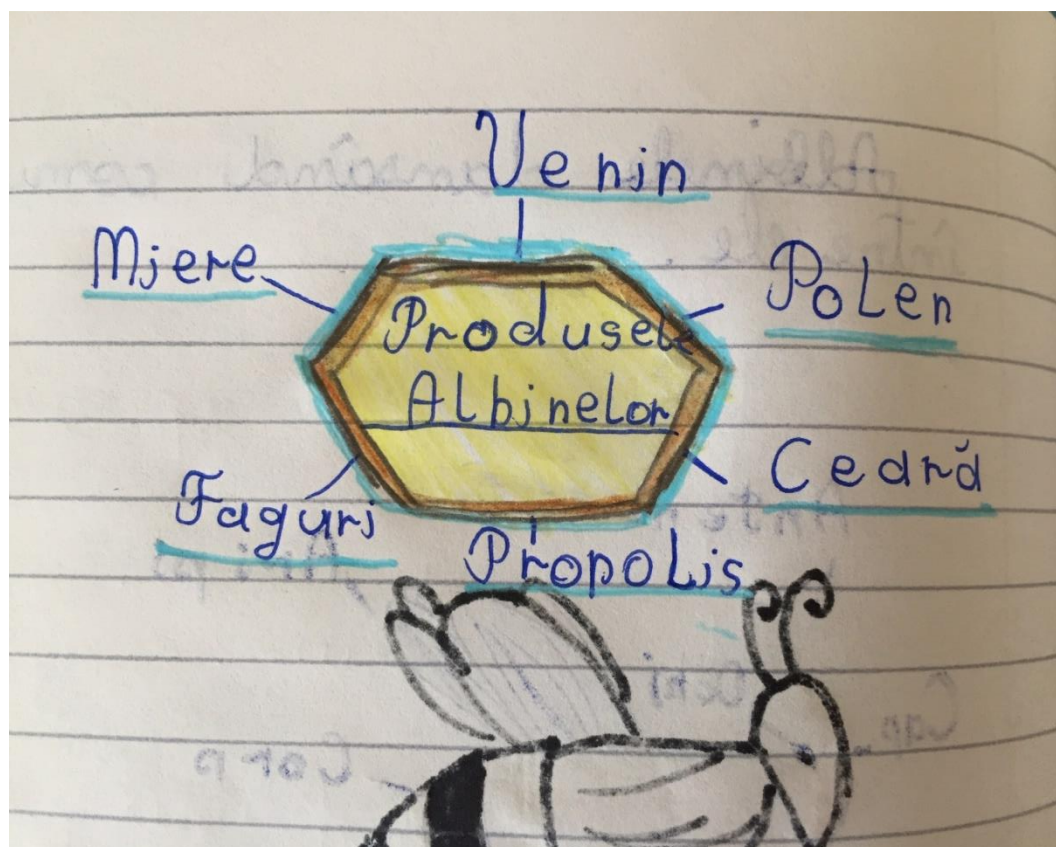 Venin
Miere
Polen
Produsele
Albinelor
Ceară
Faguri
Propolis
Corp